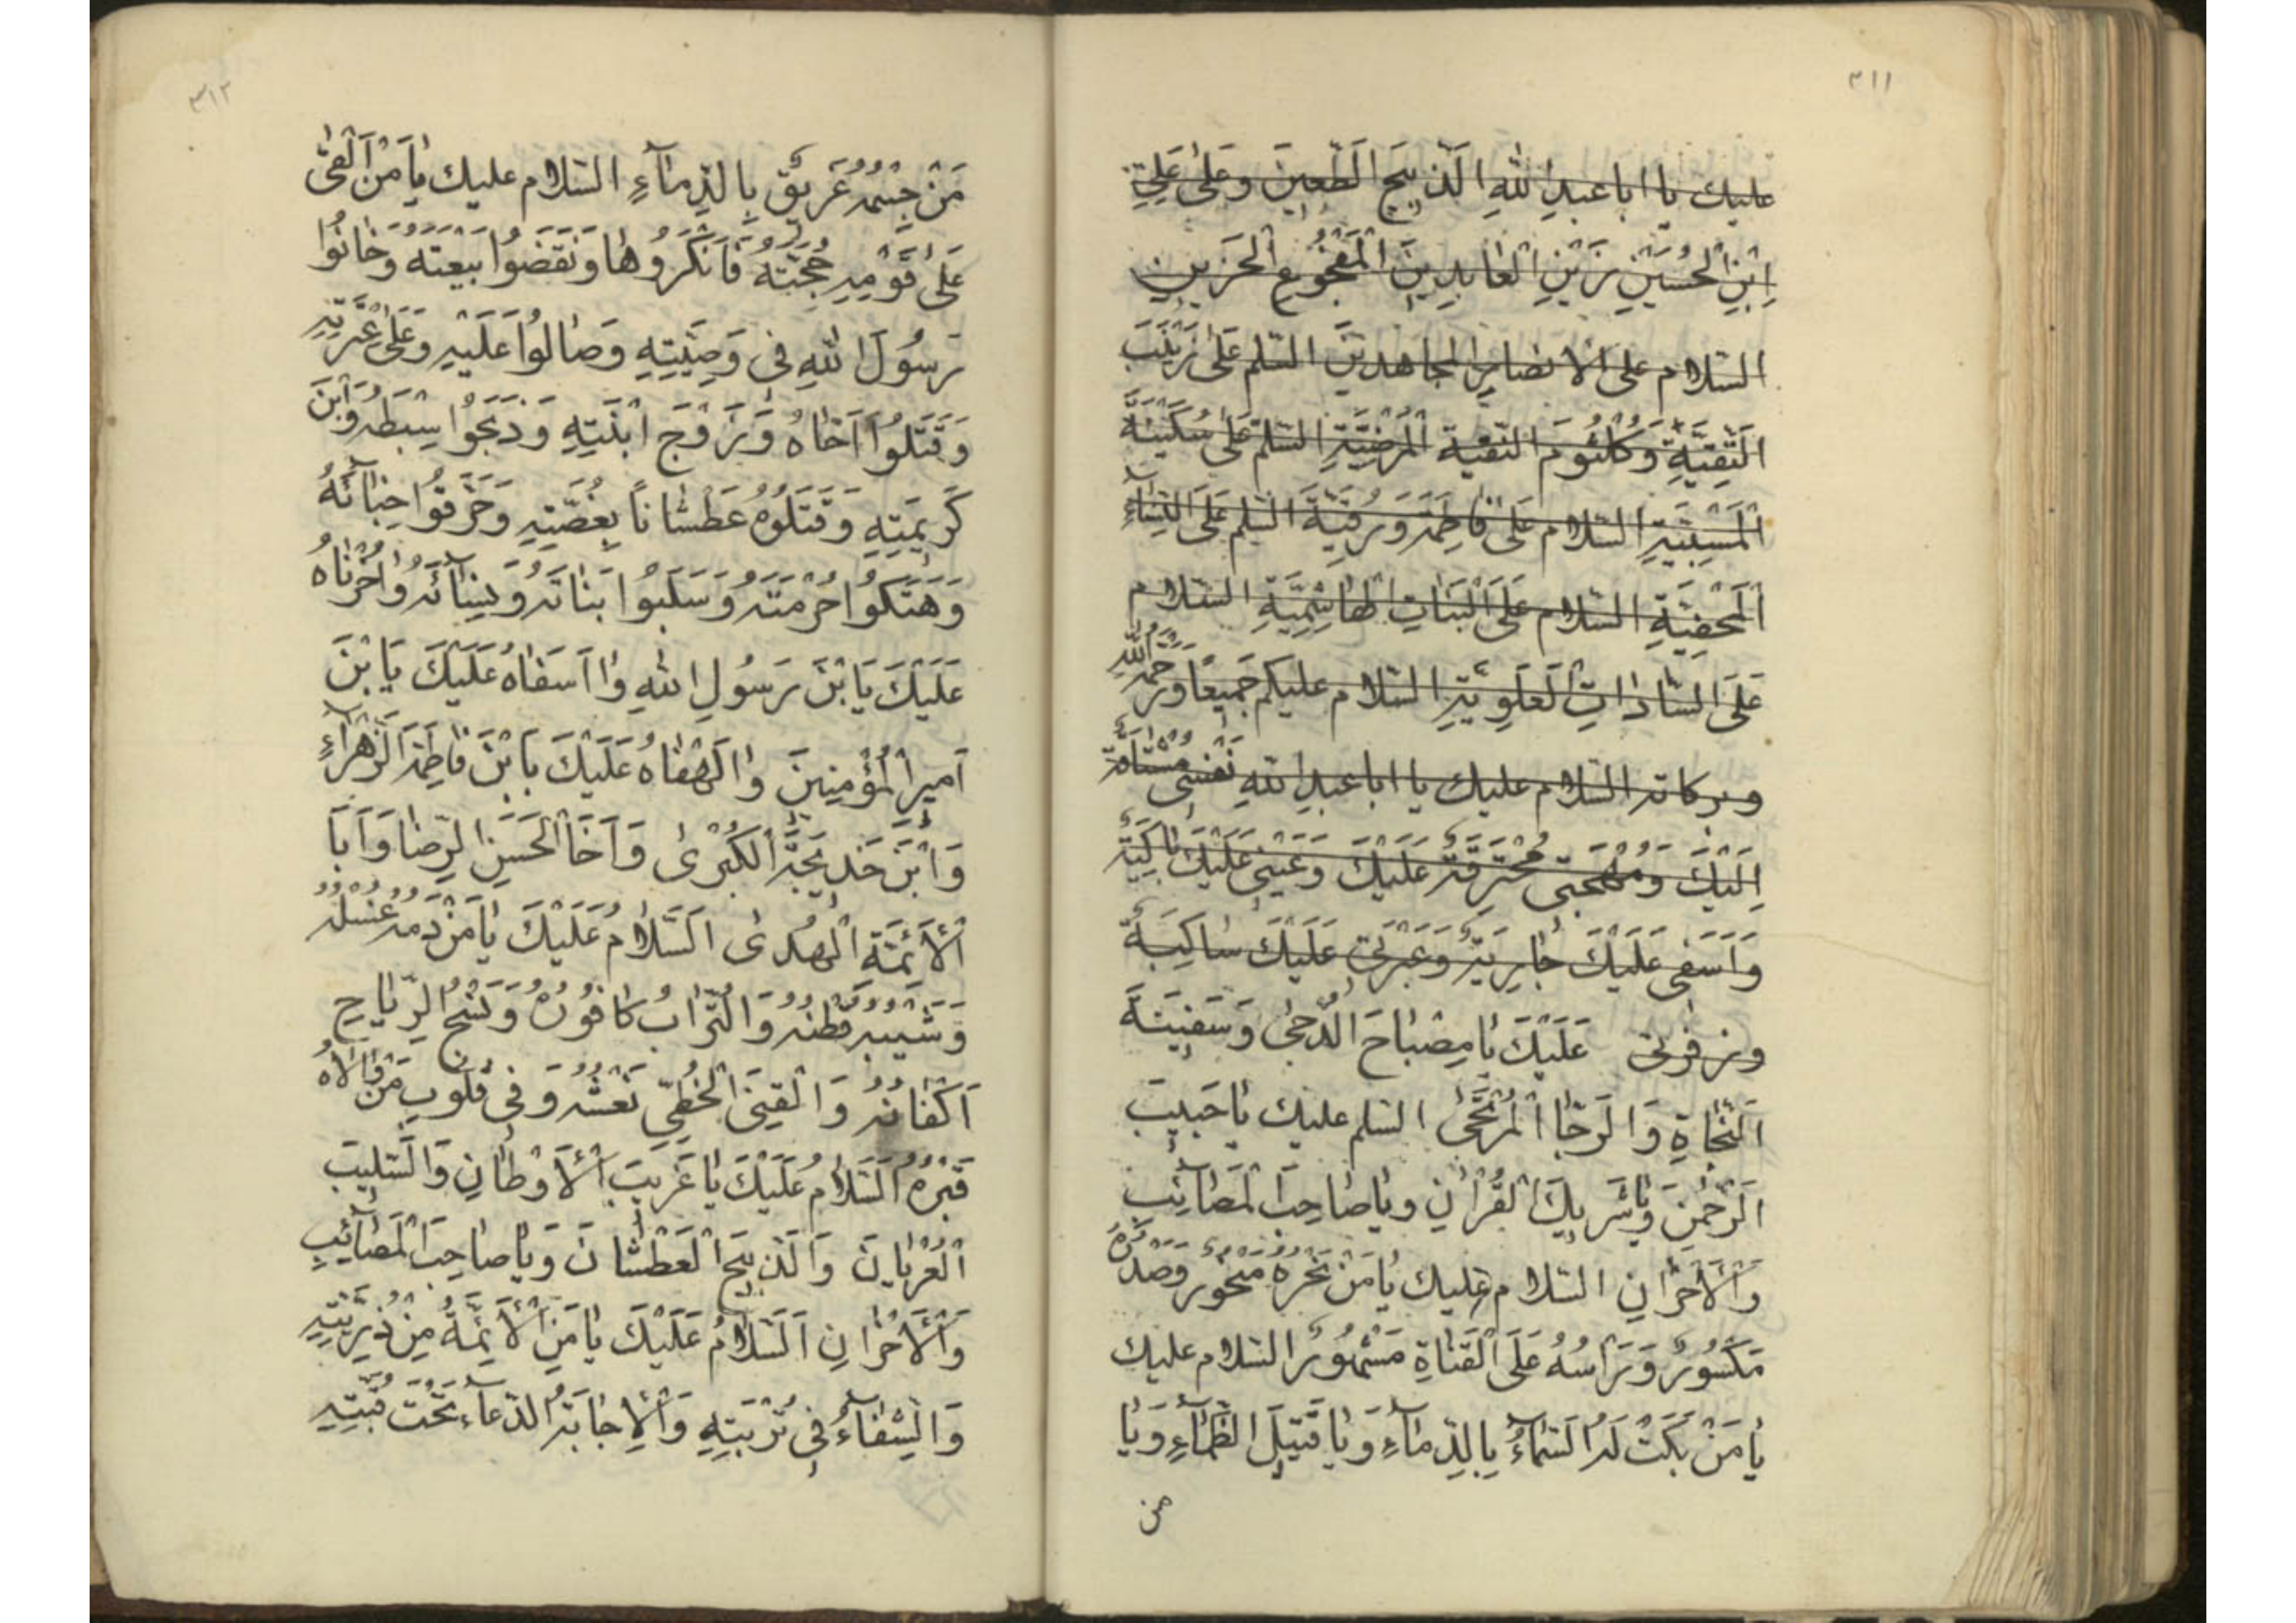 ٣١١
عليك يا ابا عبدِ اللهِ الذبيحِ الطعينِ وعلى عَلِيّ
اِبْنِ الْحُسَيْنِ زَيْنِ الْعابِدِينَ الْمَفْجُوعِ الْحَزينِ
السّلام على الانصارِ المجاهدين السّلم عَلى زَيْنَبَ
التَّقِيَّةِ وَكُلْثُومَ النّقية الْمَرْضِيَّةِ السّلم عَلى سُكَيْنَةَ
الْمَسْبِيَّةِ السّلام عَلى فاطِمَةَ وَرُقَيَّةَ السّلم عَلَى النِّسآءِ
الْمَخْفِيَّةِ السّلام عَلَى الْبَناتِ الْهاشِمِيَّةِ السّلام
عَلَى السّاداتِ الْعَلَوِيَّةِ السّلام عليكم جَميعًا وَرَحْمَةُ اللهِ
وبركاته السّلام عليك يا ابا عبدِ اللهِ نَفْسى مُشْتاقَةٌ
اِلَيْكَ وَمُهْجَتى مُحْتَرِقَةٌ عَلَيْكَ وَعَيْنى عَلَيْكَ باكِيَةٌ
وَاَسَفى عَلَيْكَ جارِيَةٌ وَعَبْرَتى عَلَيْكَ ساكِبَةٌ
وزفرتى عَلَيْكَ يا مِصْباحَ الدُّجى وَسَفينَةَ
النَّجاةِ وَالرَّجَا الْمُرْتَجى السّلم عليك يا حَبيبَ
الرَّحْمنِ وَيا شَريكَ الْقُرْانِ ويا صاحِبَ الْمَصآئِبِ
وَالْاَحْزانِ السّلام عليك يا مَنْ نَحْرُهُ مَنْحُورٌ وَصَدْرُهُ
مَكْسُورٌ وَرَاْسُهُ عَلَى الْقَناةِ مَشْهُورٌ السّلام عليك
يا مَنْ بَكَتْ لَهُ السَّمآءُ بِالدِّمآءِ وَيا قَتيلَ الظَّمآءِ وَيا
من
٣١٢
مَنْ جِسْمُهُ غَريقٌ بِالدِّمآءِ السّلام عليك يا مَنْ اَلْقى
عَلى قَوْمِهِ حُجَّتَهُ فَاَنْكَرُوها وَنَقَضُوا بَيْعَتَهُ وَخانُوا
رَسُولَ اللهِ فى وَصِيَّتِهِ وَصالُوا عَلَيْهِ وَعَلى عِتْرَتِهِ
وَقَتَلُوا اَخاهُ وَزَوْجَ ابْنَتِهِ وَذَبَحُوا سِبْطَهُ وَابْنَ
كَريمَتِهِ وَقَتَلُوهُ عَطْشانًا بِغُصَّتِهِ وَحَرَّقُوا خِبائَهُ
وَهَتَكُوا حُرْمَتَهُ وَسَلَبُوا بَناتَهُ وَنِسآئَهُ واحُزْناهُ
عَلَيْكَ يَا بْنَ رَسُولِ اللهِ وا اَسَفاهُ عَلَيْكَ يَا بْنَ
اَميرِ الْمُؤْمِنينَ والَهْفاهُ عَلَيْكَ يَا بْنَ فاطِمَةَ الزَّهْرآءِ
وَابْنَ خَديجَةَ الْكُبْرى وَاَخَا الْحَسَنِ الرِّضا وَاَبَا
الْاَئِمَّةِ الْهُدى اَلسَّلامُ عَلَيْكَ يا مَنْ دَمُهُ غُسْلُهُ
وَشَيْبُهُ قُطْنُهُ وَالتُّرابُ كافُورُهُ وَنَسْجُ الرِّياحِ
اَكْفانُهُ وَالْقَنَا الْخَطِّيّ نَعْشُهُ وَفى قُلُوبِ مَنْ والاهُ
قَبْرُهُ اَلسَّلامُ عَلَيْكَ يا غَريبَ الْاَوْطانِ وَالسَّليبَ
الْعُرْيانَ وَالذَّبيحَ الْعَطْشانَ وَيا صاحِبَ الْمَصآئِبِ
وَالْاَحْزانِ اَلسَّلامُ عَلَيْكَ يا مَنِ الْاَئِمَّةُ مِنْ ذُرِّيَّتِهِ
وَالشِّفآءُ فى تُرْبَتِهِ وَالْاِجابَةُ الدّعآء تَحْتَ قُبَّتِهِ